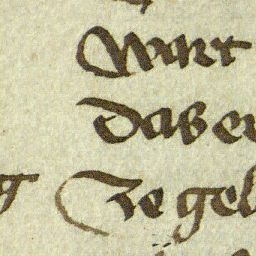 Wart
Das er
g Ze gel